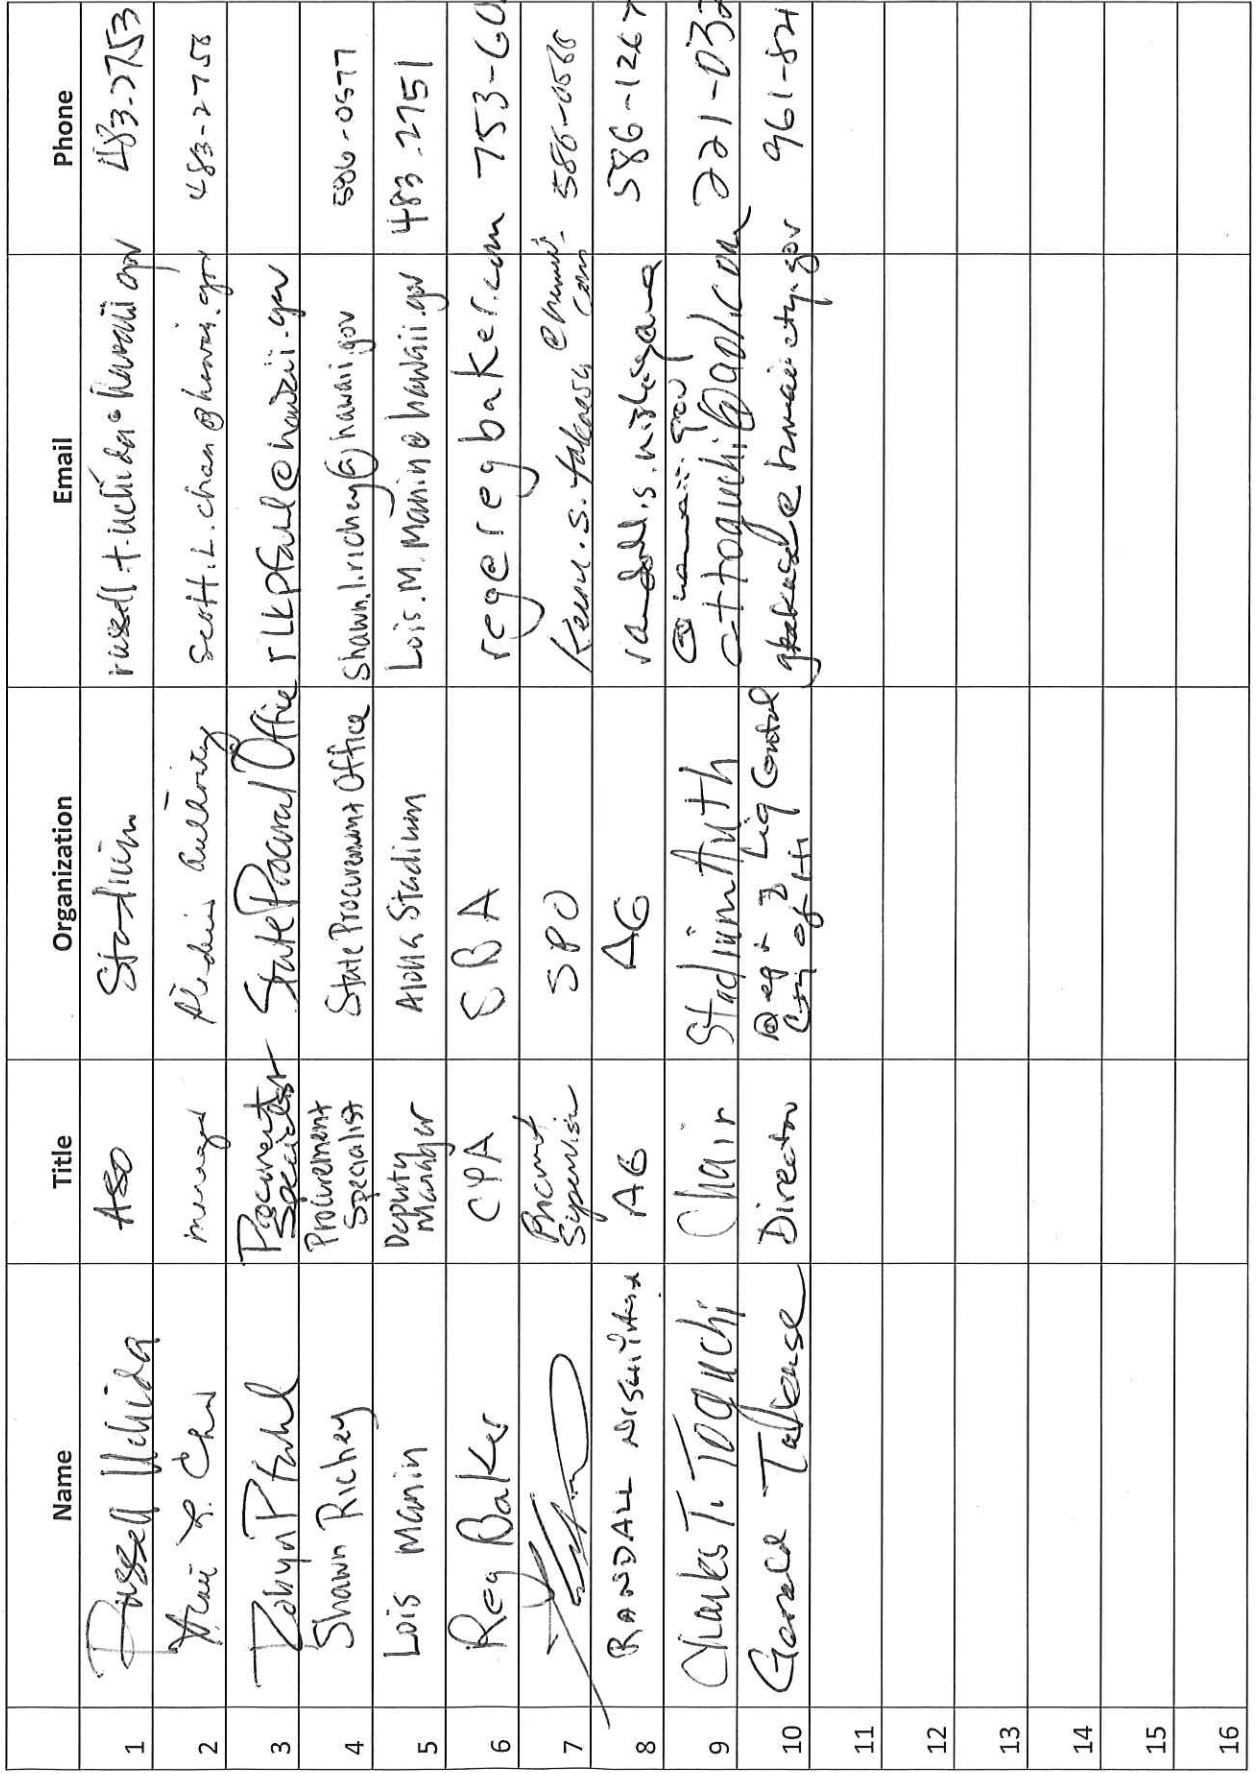 Name Title Organization Email Phone
1 Russell Uchida ASO Stadium russell.t.uchida@hawaii.gov 483-2753
2 L. Chan manager Stadium Authority scott.l.chan@hawaii.gov 483-2750
3 Robyn Pfahl Procurement Specialist State Procural Office rlkpfahl@hawaii.gov
4 Shawn Richey Procurement Specialist State Procurement Office shawn.l.richey@hawaii.gov 586-0577
5 Lois Manin Deputy Manager Aloha Stadium Lois.M.Manin@hawaii.gov 483-2751
6 Reg Baker CPA SBA reg@regbaker.com 753-60
7 Procurmt Supervisor SPO 586-0566
8 RANDALL NISHIYAMA AG AG randall.s.nishiyama @hawaii.gov 586-1267
9 Charles T. Toguchi Chair Stadium Auth cttoguchi@aol.com 221-03
10 Gerald Takase Director Dept of Liq Control Cty of HI gtakase@hawaiicty.gov 961-82
11
12
13
14
15
16